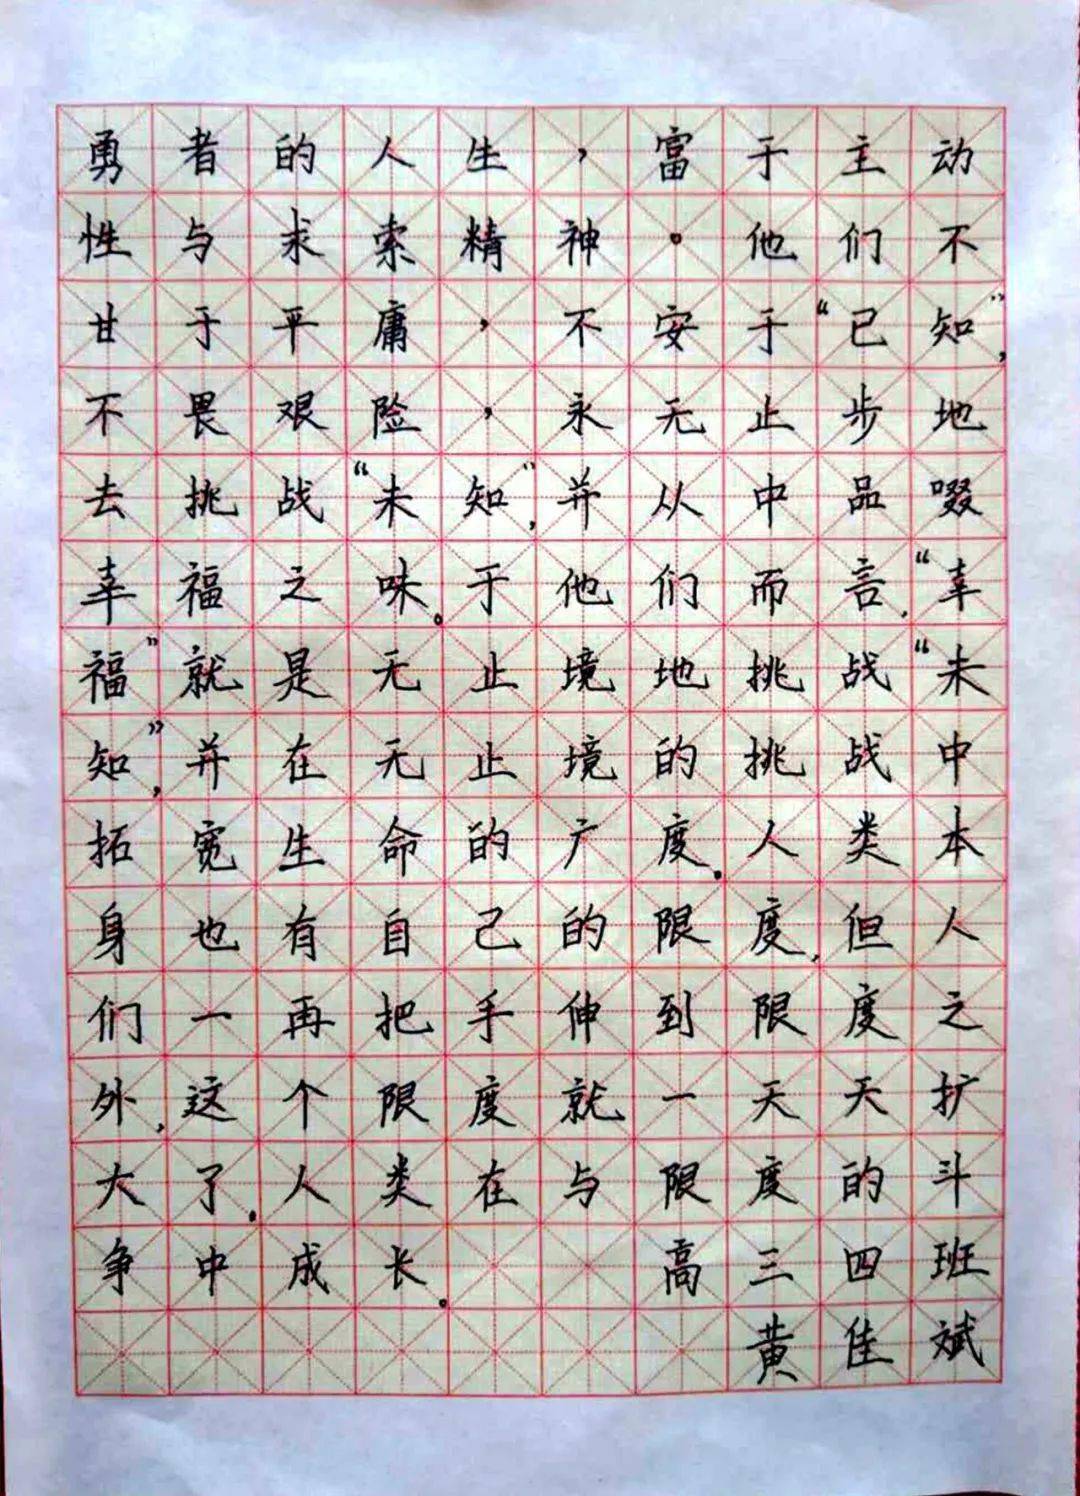 勇者的人生，富于主动
性与求索精神。他们不
甘于平庸，不安于“已知”，
不畏艰险，永无止步地
去挑战“未知”，并从中品啜
幸福之味。于他们而言，“幸
福”就是无止境地挑战“未
知”，并在无止境的挑战中
拓宽生命的广度。人类本
身也有自己的限度，但人
们一再把手伸到限度之
外，这个限度就一天天扩
大了。人类在与限度的斗
争中成长。 高三四班
黄佳斌